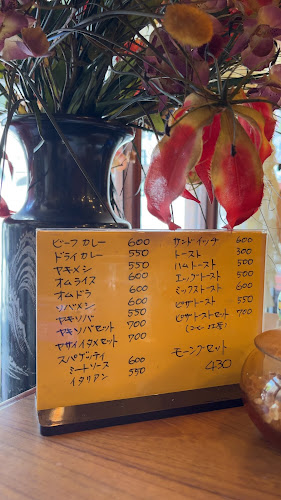 ビーフカレー 600
ドライカレー 550
ヤキメシ 550
オムライス 600
オムドラ 600
ソバメシ 550
ヤキソバ 550
ヤキソバセット 700
ヤサイイタメセット 700
スパゲッティ
ミートソース 600
イタリアン 550
サンドイッチ 600
トースト 300
ハムトースト 500
エッグトースト 500
ミックストースト 600
ピザトースト 550
ピザトーストセット 700
モーニングセット
430